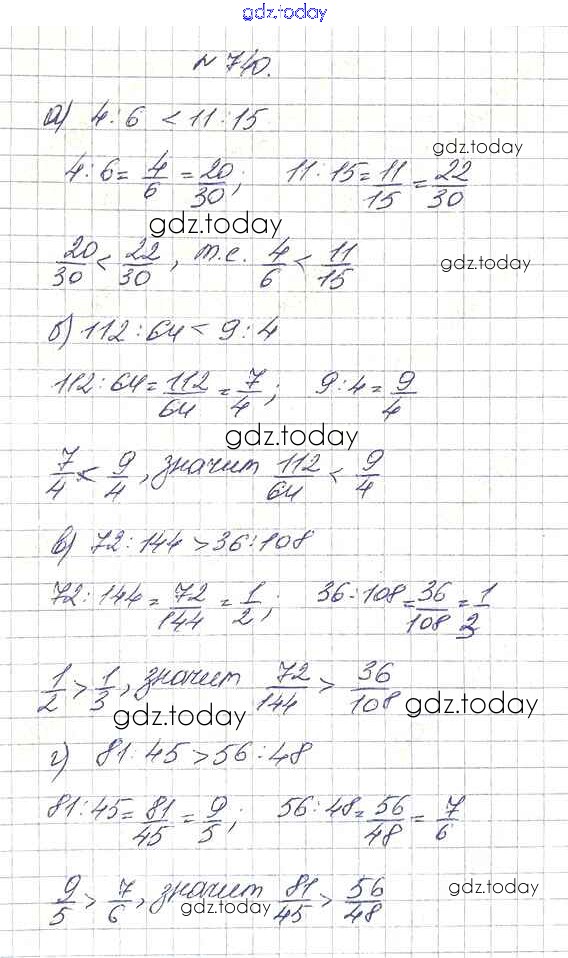 gdz.today
№ 740.
а) 4:6 < 11:15
gdz.today
4:6 = 4/6 = 20/30; 11:15 = 11/15 = 22/30
gdz.today
20/30 < 22/30, т.е. 4/6 < 11/15
gdz.today
б) 112:64 < 9:4
112:64 = 112/64 = 7/4; 9:4 = 9/4
gdz.today
7/4 < 9/4, значит 112/64 < 9/4
в) 72:144 > 36:108
72:144 = 72/144 = 1/2; 36:108 = 36/108 = 1/3
1/2 > 1/3, значит 72/144 > 36/108
gdz.today
gdz.today
г) 81:45 > 56:48
81:45 = 81/45 = 9/5; 56:48 = 56/48 = 7/6
9/5 > 7/6, значит 81/45 > 56/48
gdz.today
gdz.today